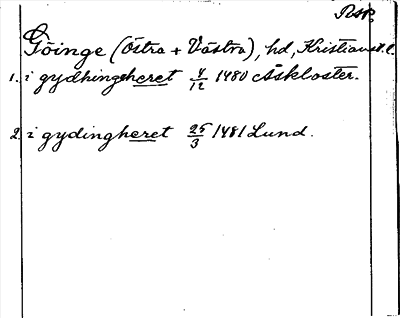 Göinge (Östra + Västra), hd, Kristianst. l.
1. i gydhingeheret 4/12 1480 Åskloster.
2. i gydingheret 25/3 1481 Lund.